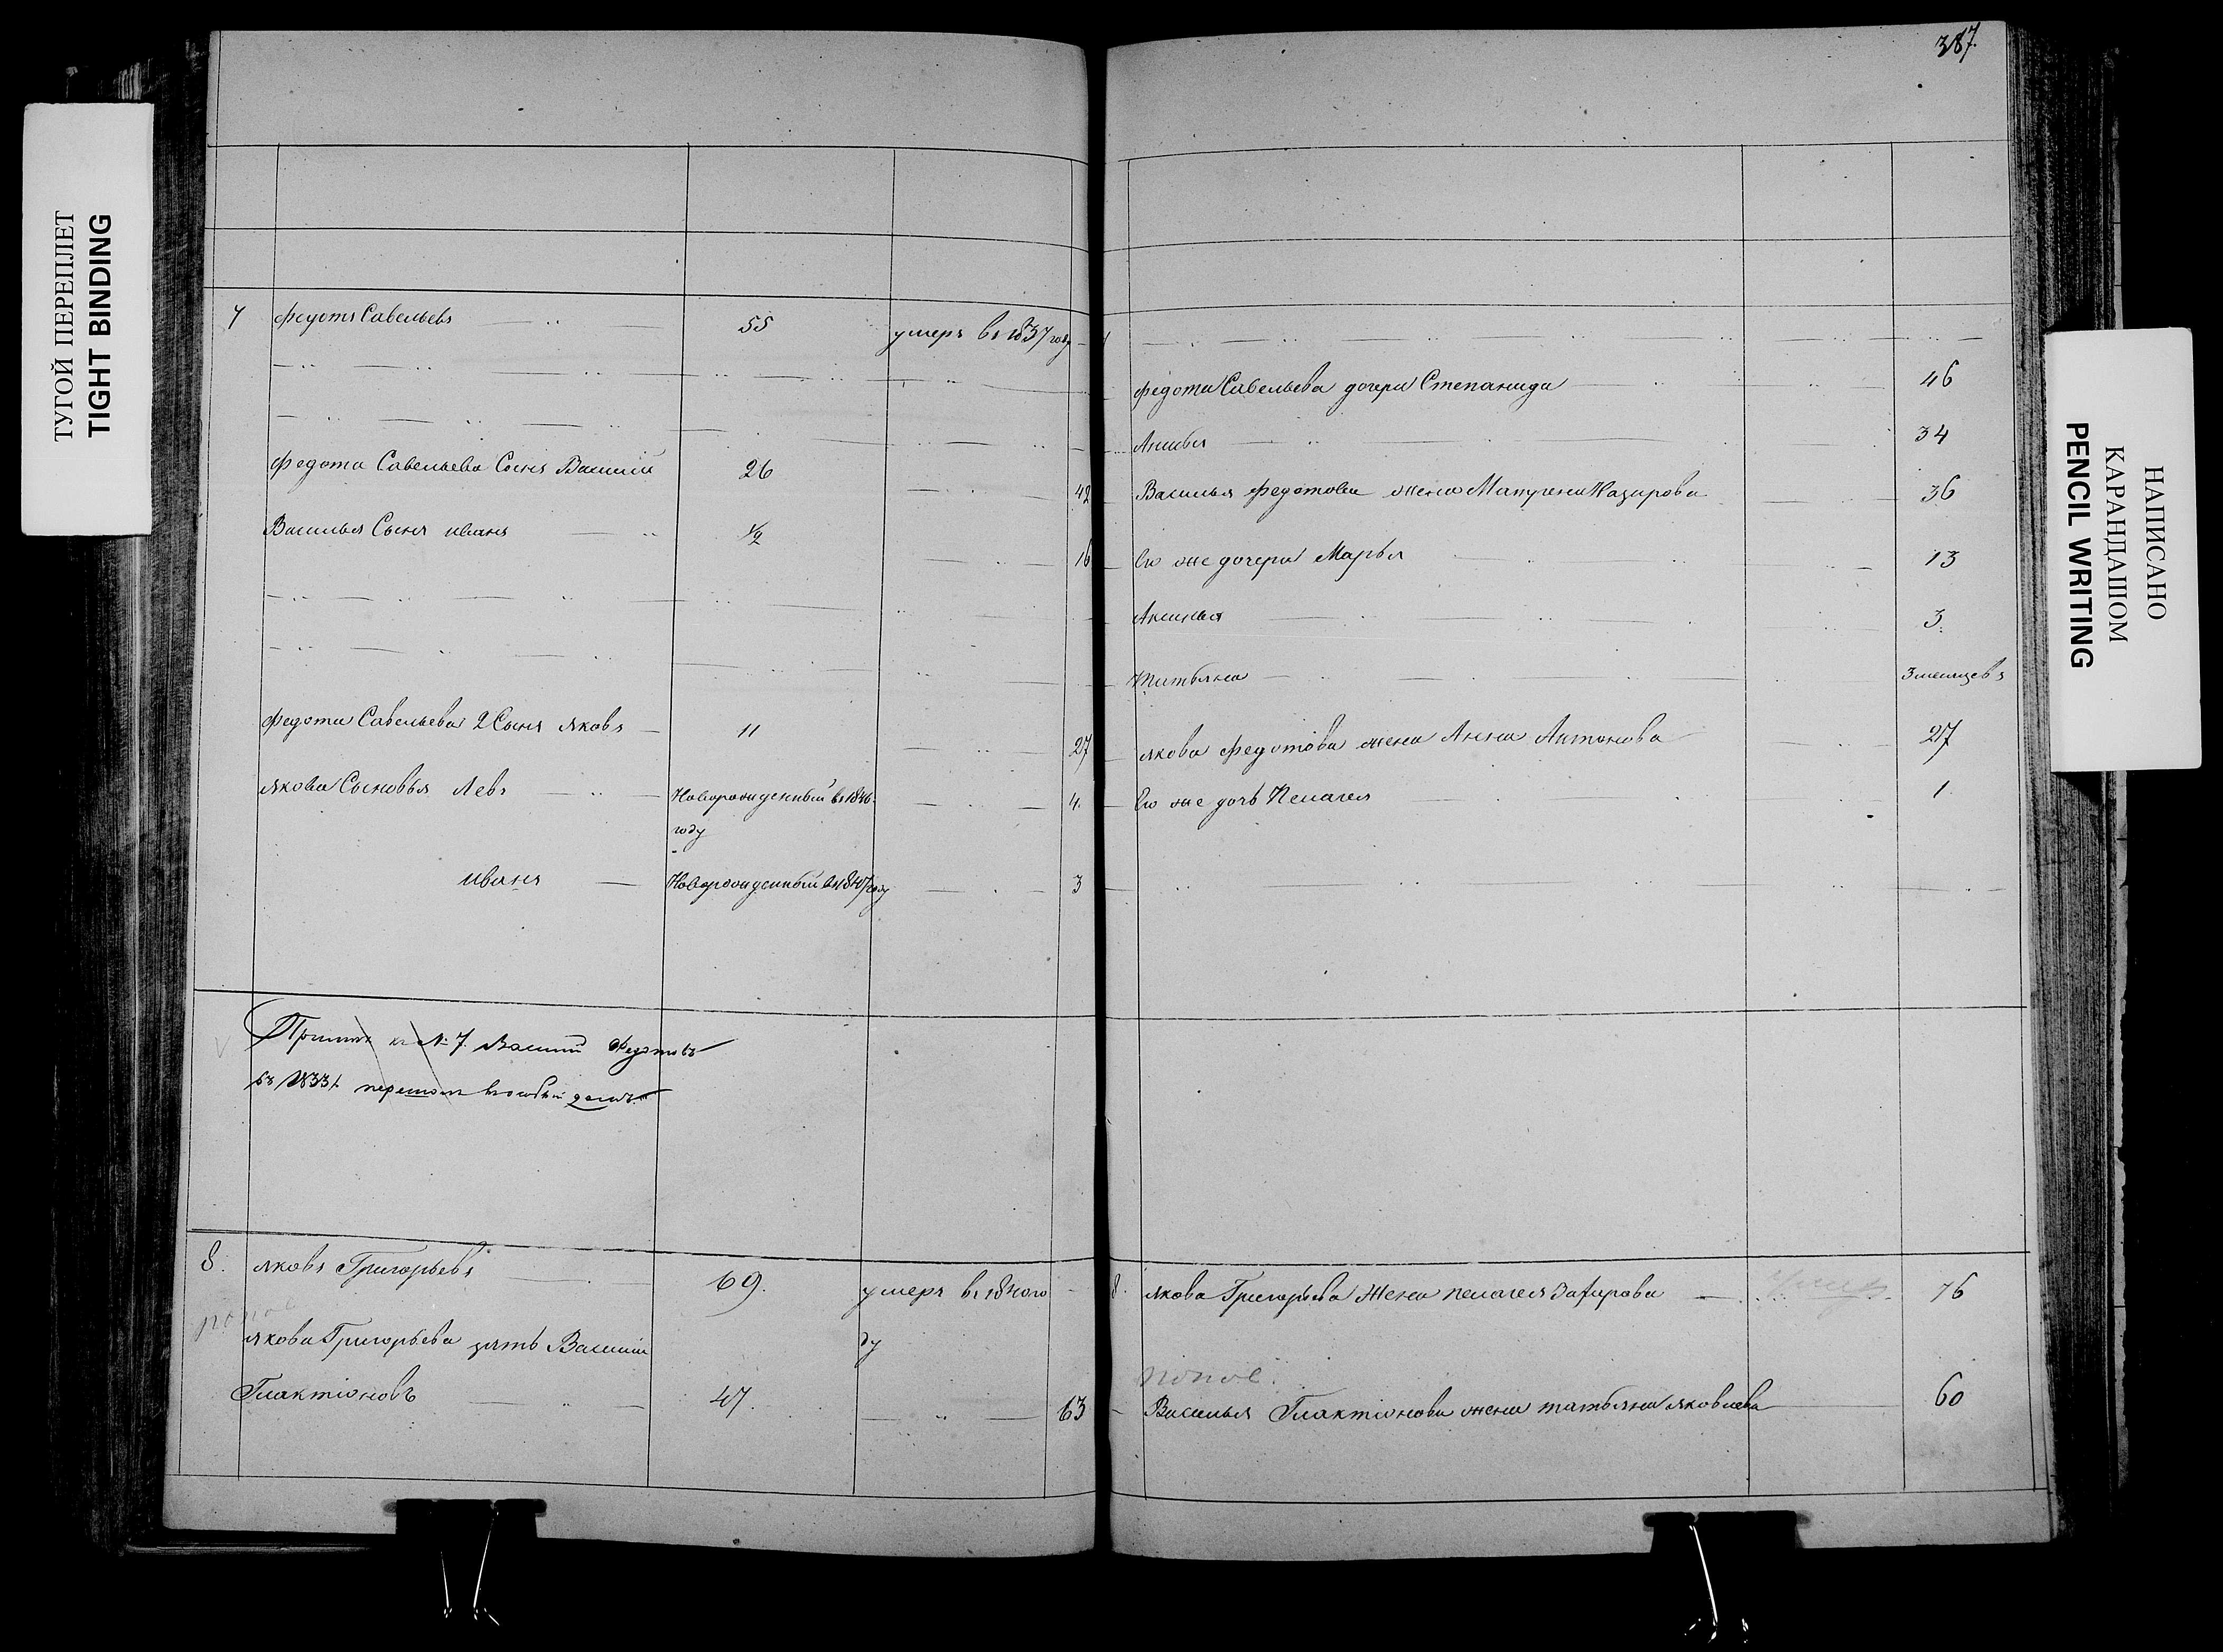 387.
ТУГОЙ ПЕРЕПЛЕТ
TIGHT BINDING
7 Федотъ Савельевъ 55 умеръ въ 1837 году
Федота Савельева Сынъ Василий 26 42
Василья Сынъ иванъ 1/2 16
Федота Савельева 2 Сынъ яковъ 11 27
якова Сыновья Левъ Новорожденный въ 1846. 4.
году
иванъ Новорожденный въ 1847 году 3
къ № 7. Василий Федотовъ
въ 1833 г. перешолъ въ особый домъ
8. яковъ Григорьевъ 69. умеръ въ 1840 го
попов
якова Григорьева зять Василий ду
Глактионовъ 47. 63
Федота Савельева дочери Степанида 46
34
Василья Федотова жена Матрена Назарова 36
Ево же дочери Марья 13
Аксинья 3.
татьяна 3 месяцевъ
якова Федотова жена Анна Антонова 27
Ево же дочь Пелагея 1
8. якова Григорьева Жена пелагея 76
попов.
Василья Глактионова жена татьяна яковлева 60
НАПИСАНО
КАРАНДАШОМ
PENCIL WRITING